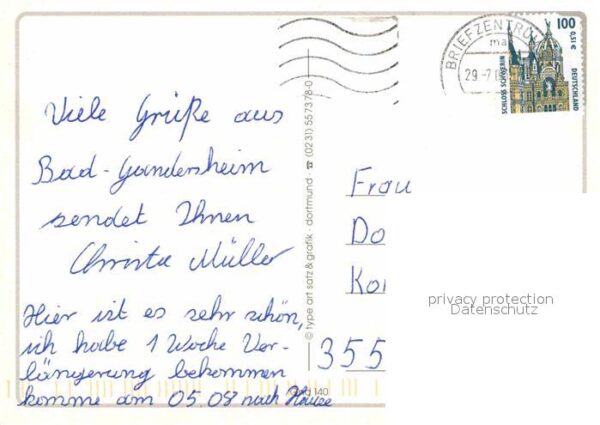 Viele Grüße aus
Bad-Gandersheim
sendet Ihnen
Christa Müller
Hier ist es sehr schön,
ich habe 1 Woche Ver-
längerung bekommen
komme am 05.08 nach Hause
© type art satz & grafik · dortmund · ☎ (0231) 55 73 78-0
140
BRIEFZENTRUM
29.-7
100
0,51 €
DEUTSCHLAND
SCHLOSS SCHWERIN
Frau
Do
Ko
355
privacy protection
Datenschutz